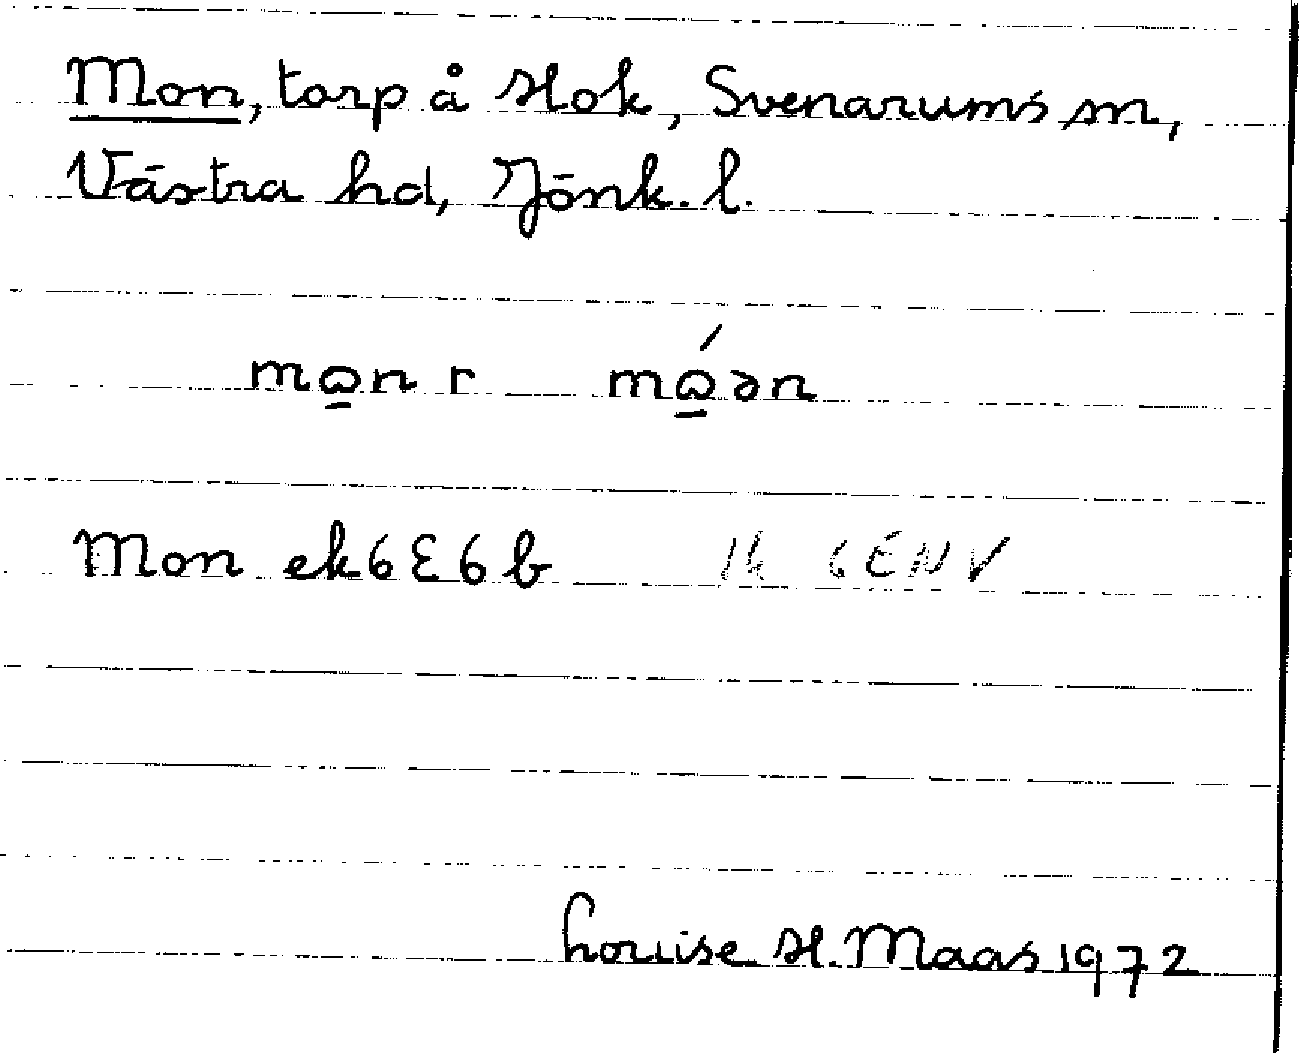 Mon, torp å Hok, Svenarums sn,
Västra hd, Jönk. l.
mɷ̱n r mɷ̱́ən
Mon ek 6E6b 14 6ENV
Louise H. Maas 1972